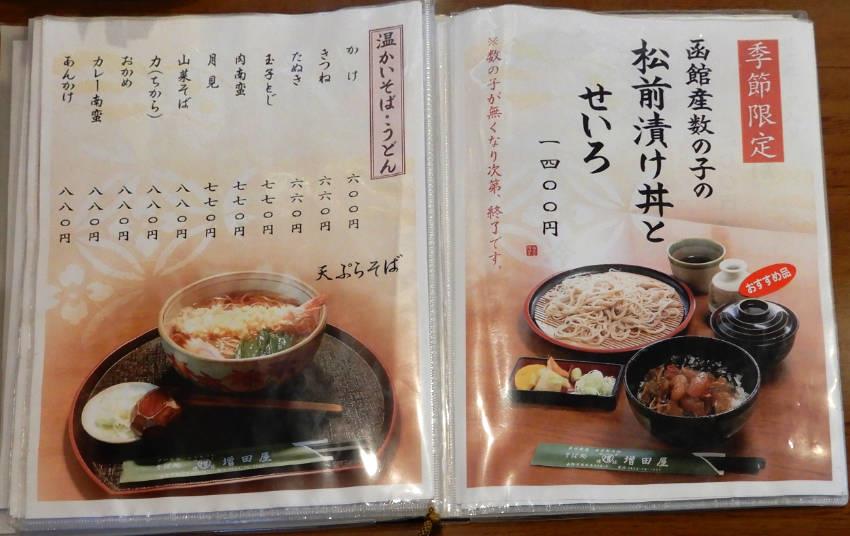 季節限定
函館産数の子の
松前漬け丼と
せいろ
一四〇〇円
※数の子が無くなり次第、終了です。
おすすめ品
そば処
増田屋
温かいそば・うどん
かけ 六〇〇円
きつね 六六〇円
たぬき 六六〇円
玉子とじ 七七〇円
肉南蛮 七七〇円
月見 七七〇円
山菜そば 八八〇円
力(ちから) 八八〇円
おかめ 八八〇円
カレー南蛮 八八〇円
あんかけ 八八〇円
天ぷらそば
そば処
増田屋